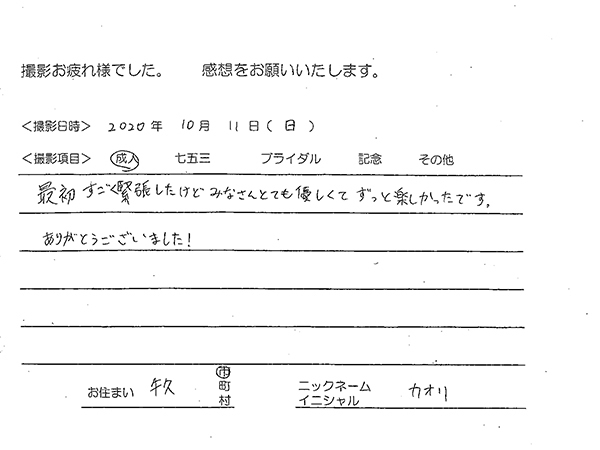 撮影お疲れ様でした。 感想をお願いいたします。
＜撮影日時＞ 2020年 10月 11日(日)
＜撮影項目＞ 成人 七五三 ブライダル 記念 その他
最初すごく緊張したけどみなさんとても優しくてずっと楽しかったです。
ありがとうございました!
お住まい 牛久 市 町 村 ニックネーム イニシャル カオリ